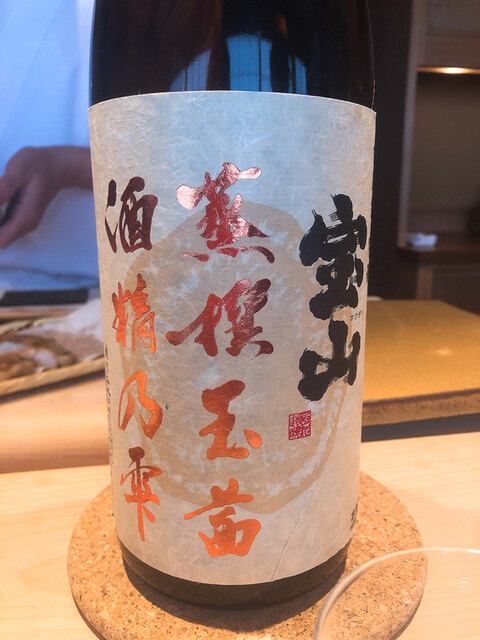 宝山
蒸撰玉茜
酒精乃雫